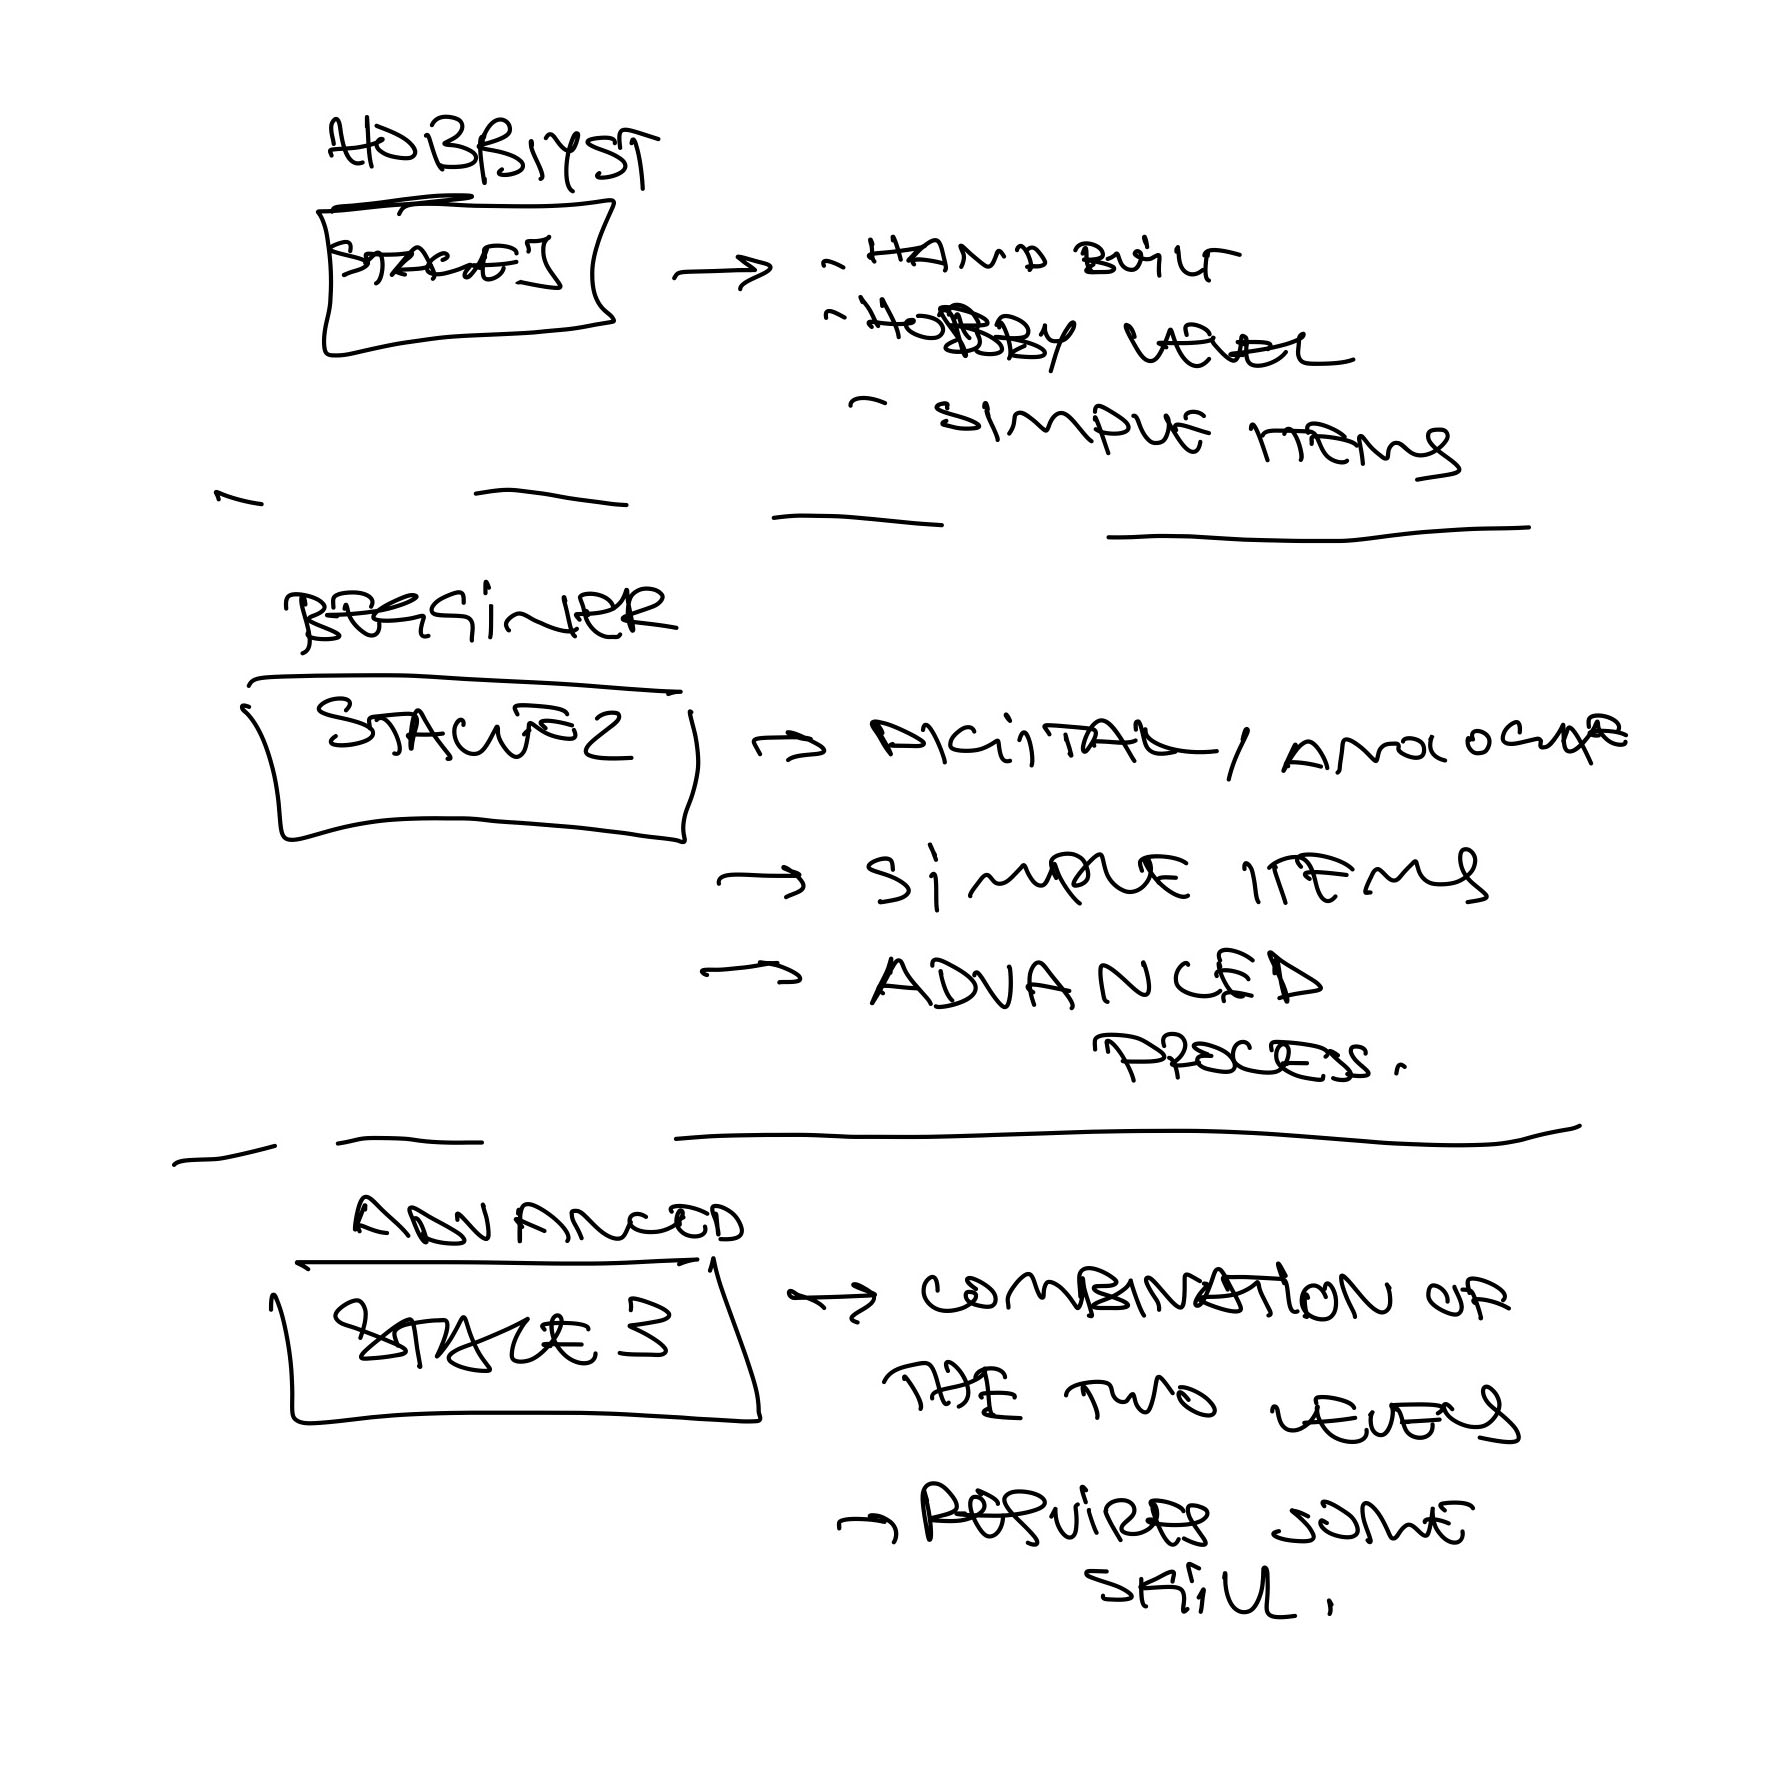 HOBBIYST
STAGE 1
- HAND BUILT
- HOBBY LEVEL
- SIMPLE ITEMS
BEGGINER
STAGE 2 → DIGITAL / ANOLOGUE
→ SIMPLE ITEMS
→ ADVANCED
PROCESS.
ADVANCED
STAGE 3 → COMBINATION OF
THE TWO LEVELS
→ REQUIRES SOME
SKILL.